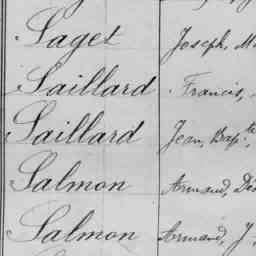 Saget Joseph, M
Saillard Francis,
Saillard Jean, Bapte,
Salmon Armand, Dé
Salmon Armand, J,